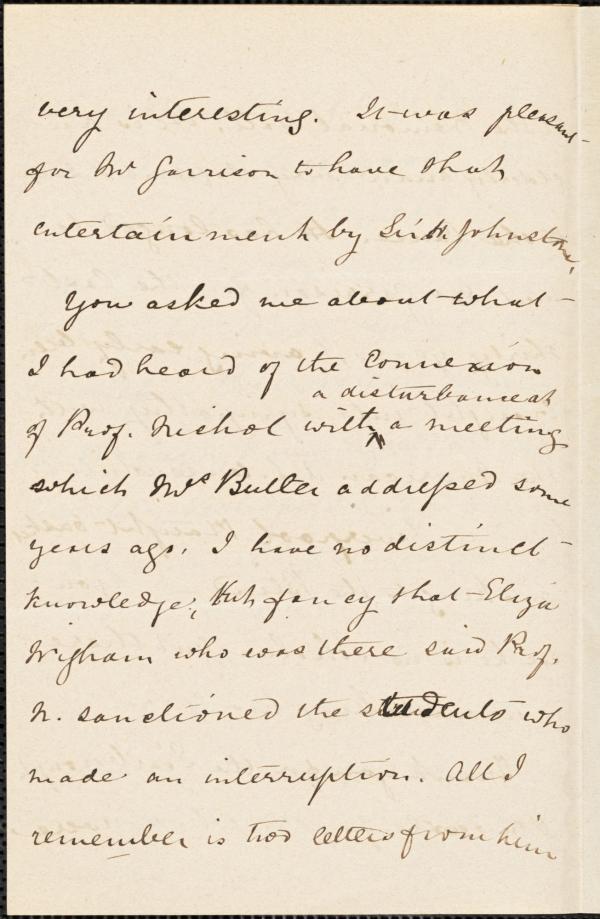 very interesting. It was pleasant
for Mr Garrison to have that
entertainment by Sir H. Johnstone,
You asked me about what
I had heard of the connexion
a disturbance at
of Prof. Nichol with ^ a meeting
which Mrs Butler addressed some
years ago. I have no distinct
knowledge, but fancy that Eliza
Wigham who was there said Prof.
N. sanctioned the students who
made an interruption. All I
remember is two letters from him